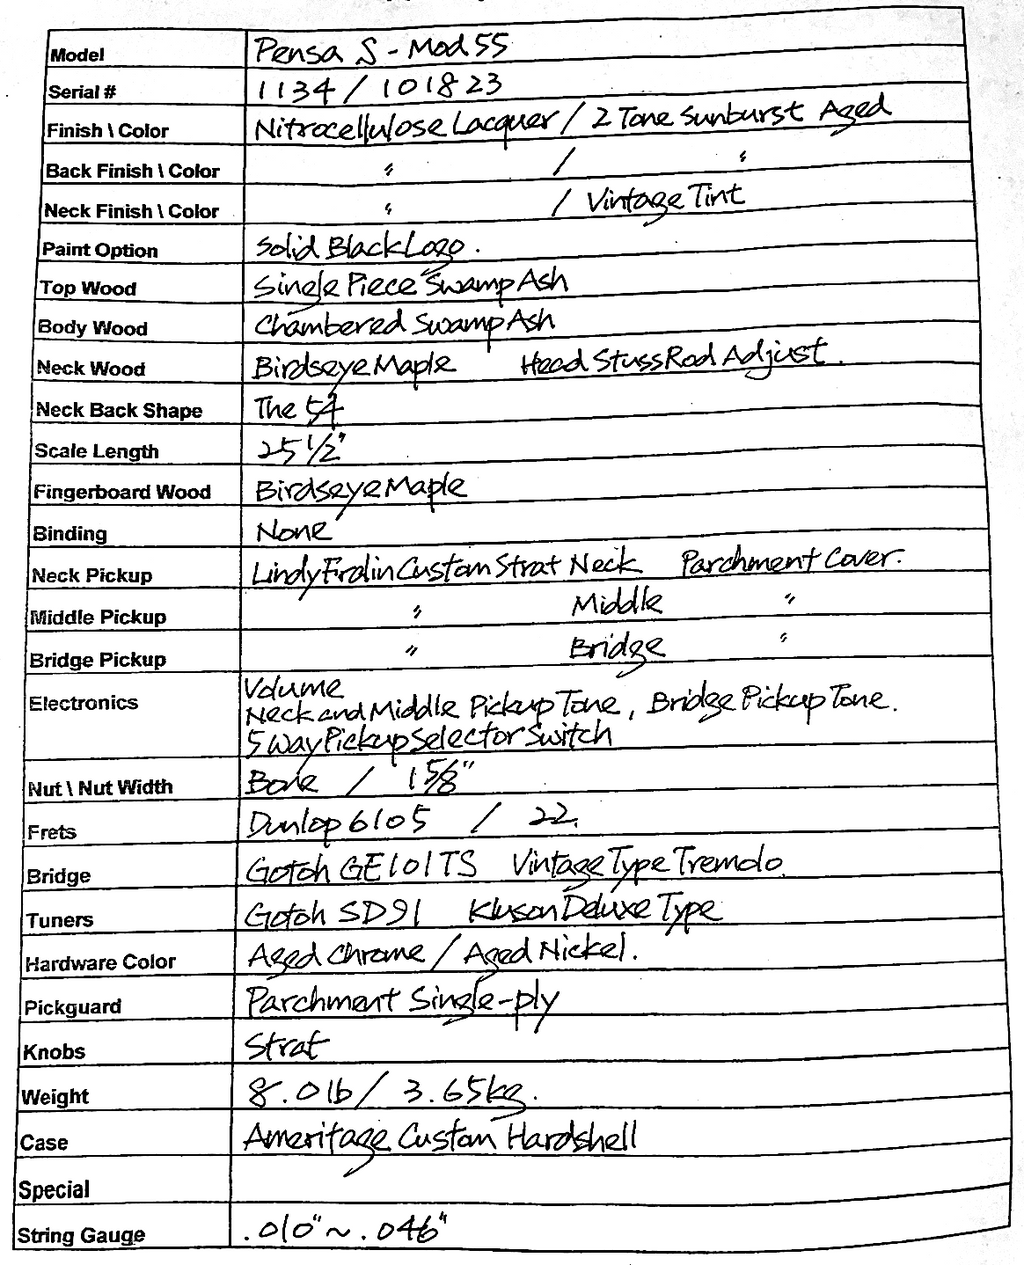 Model Pensa S - Mod 55
Serial # 1134 / 101823
Finish \ Color Nitrocellulose Lacquer / 2 Tone Sunburst Aged
Back Finish \ Color " / "
Neck Finish \ Color " / Vintage Tint
Paint Option Solid Black Logo.
Top Wood Single Piece Swamp Ash
Body Wood Chambered Swamp Ash
Neck Wood Birdseye Maple Head Stuss Rod Adjust.
Neck Back Shape The 54
Scale Length 25 1/2"
Fingerboard Wood Birdseye Maple
Binding None
Neck Pickup Lindy Fralin Custom Strat Neck Parchment Cover.
Middle Pickup " Middle "
Bridge Pickup " Bridge "
Electronics Volume
Neck and Middle Pickup Tone, Bridge Pickup Tone.
5 Way Pickup Selector Switch
Nut \ Nut Width Bone / 1 5/8"
Frets Dunlop 6105 / 22.
Bridge Gotoh GE101TS Vintage Type Tremolo.
Tuners Gotoh SD91 Kluson Deluxe Type
Hardware Color Aged Chrome / Aged Nickel.
Pickguard Parchment Single-ply
Knobs Strat
Weight 8.0 lb / 3.65kg.
Case Ameritage Custom Hardshell
Special
String Gauge .010" ~ .046"